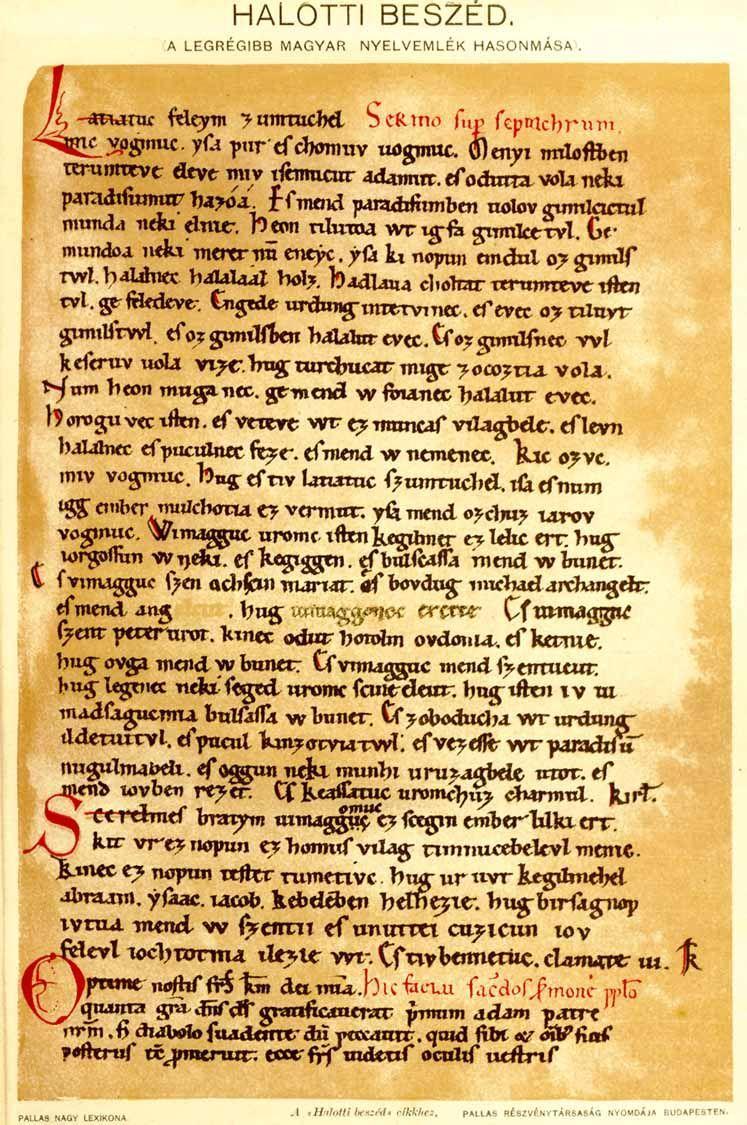 HALOTTI BESZÉD.
(A LEGRÉGIBB MAGYAR NYELVEMLÉK HASONMÁSA).
Latiatuc feleym zumtuchel Sermo sup sepulchrum.
mic vogmuc. ysa pur es chomuv uogmuc. Menyi milostben
terumteve eleve miv isemucut adamut. es odutta vola neki
paradisumut hazóá. Es mend paradisumben uolov gimilcictul
munda neki elnie. Heon tilutoa wt ig fa gimilce tvl. Ge
mundoa neki meret nū eneyc. ysa ki nopun emdul oz gimils
twl. halalnec halalaal holz. Hadlaua choltat terumteve isten
tvl. ge feledeve. Engede urdung intetvinec. es evec oz tiluvt
gimilstwl. es oz gimilsben halalut evec. Es oz gimilsnec vvl
keseruv uola vize. hug turchucat mige zocoztia vola.
Num heon muga nec. ge mend w foianec halalut evec.
Horogu vec isten. es veteve wt ez muncas vilagbele. es levn
halalnec es puculnec feze. es mend w nemenec. Kic ozvc.
miv vogmuc. Hug es tiv latiatuc szumtuchel. isa es num
igg ember mulchotia ez vermut. ysa mend ozchuz iarov
vogmuc. Wimagguc uromc isten kegilmet ez lelic ert. hug
iorgossun w neki. es kegiggen. es bulscassa mend w bunet.
Es vimagguc szen achscin mariat. es bovdug michael archangelt.
es mend ang . hug uimaggonoc erette Es uimagguc
szent peter urot. kinec odut hotolm ovdonia. es ketnie.
hug ovga mend w bunet. Es vimagguc mend szentucut.
hug legenec neki seged uromc scine eleut. hug isten iv ui
madsagucmia bulsassa w bunet. Es zoboducha wt urdung
ildetuitvl. es pucul kinzotviatwl. es vezesse wt paradisū
nugulmabeli. es oggun neki munhi uruzagbele utot. es
mend iovben rezet. Es keassatuc uromchuz charmul. kirl.
Scerelmes bratym uimaggomuc ez scegin ember lilki ert.
kit vr ez nopun ez homus vilag timnucebelevl mente.
kinec ez nopun testet tumetivc. hug ur uvt kegilmehel
abraam. ysaac. iacob. kebeleben helhezie. hug birsagnop
ivtua mend w szentii es unuttei cuzicun iov
felevl iochtotnia ilezie wt. Es tiv bennetuc. clamate iii. K
Optime nostis frs kmi dei mia. Hic faciu sacdos smone pplo
quanta gra dns ds gratificauerat pmum adam patre
nrm. s diabolo suadente dū peccauit. quid sibi et oib suis
posteris te pmeruit. ecce frs uidetis oculis uestris
PALLAS NAGY LEXIKONA.
A «Halotti beszéd» cikkhez.
PALLAS RÉSZVÉNYTÁRSASÁG NYOMDÁJA BUDAPESTEN.